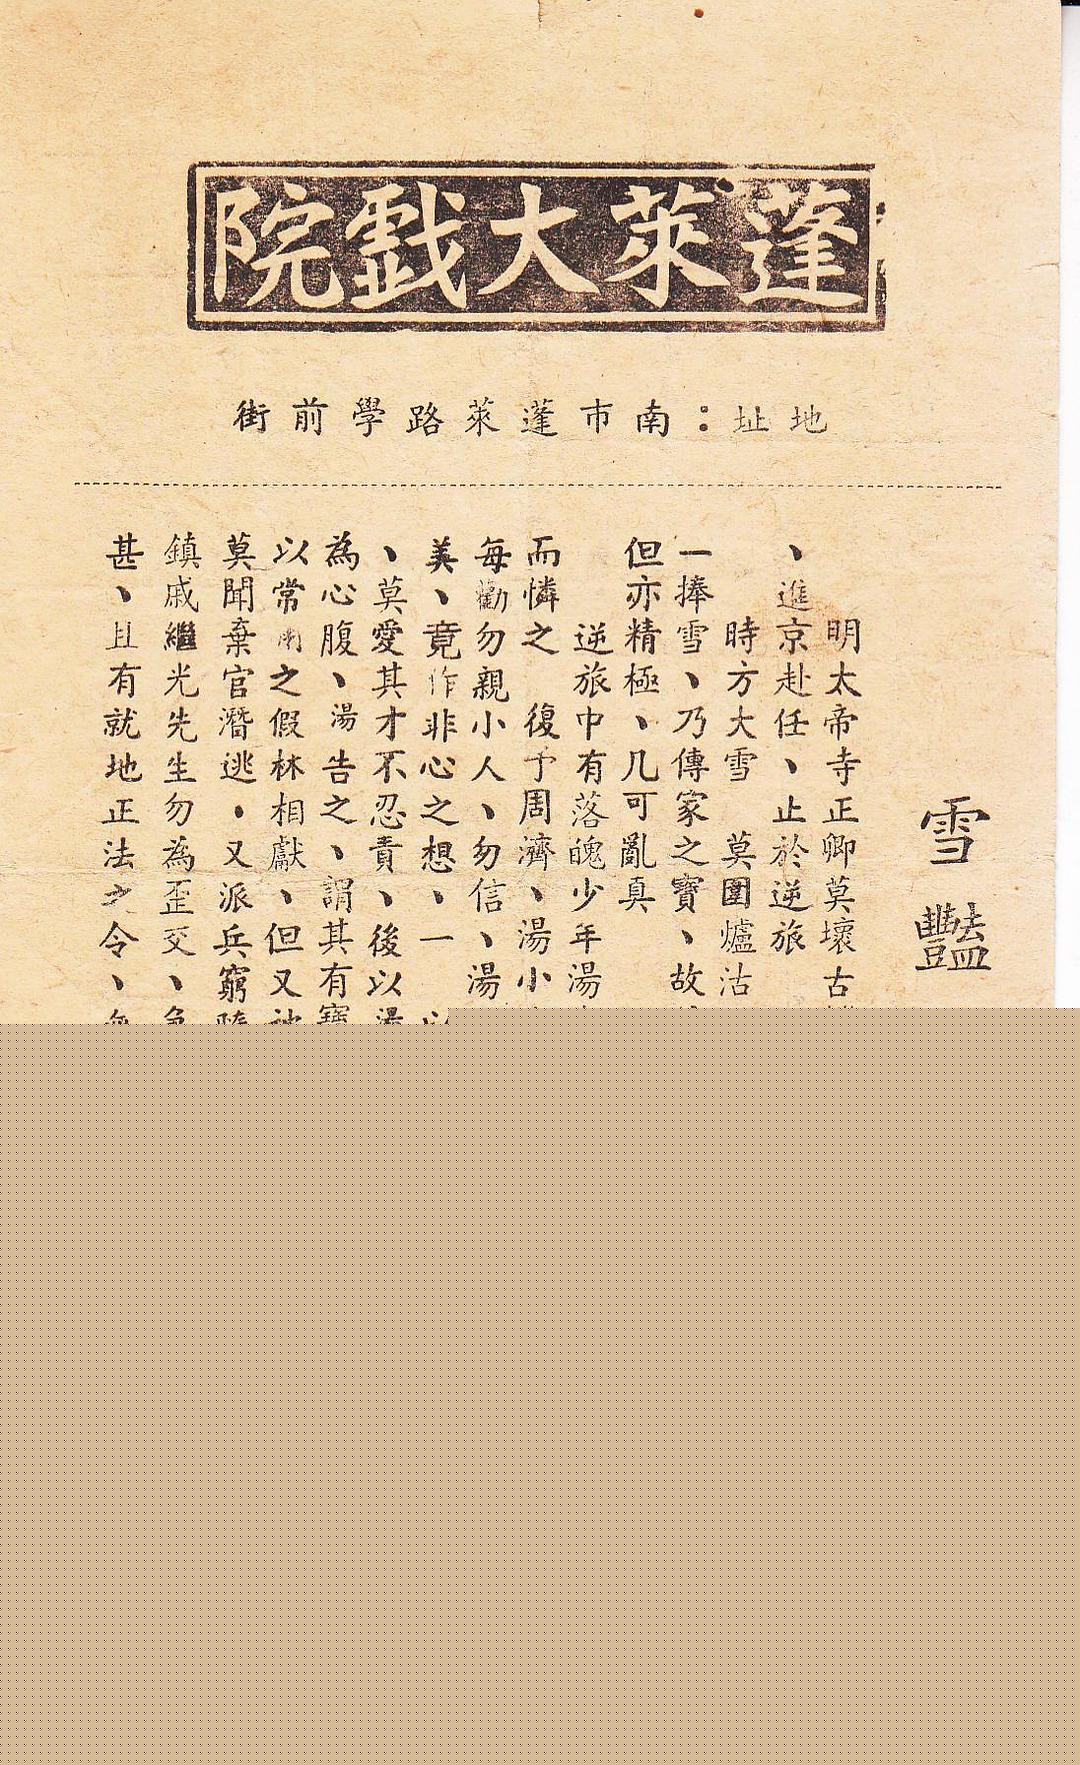 蓬萊大戲院
地址：南市蓬萊路學前街
雪豔
明太帝寺正卿莫壞古
、進京赴任、止於逆旅
時方大雪　莫圍爐沽
一捧雪、乃傳家之寶、故
但亦精極、几可亂真
逆旅中有落魄少年湯
而憐之　復予周濟、湯小
每勸勿親小人、勿信、湯
美、竟作非心之想、一
、莫愛其才不忍責、後以湯
為心腹、湯告之、謂其有寶
以常用之假林相獻、但又
莫聞棄官潛逃．又派兵窮
鎮戚繼光先生勿為歪交、
甚、且有就地正法之令、